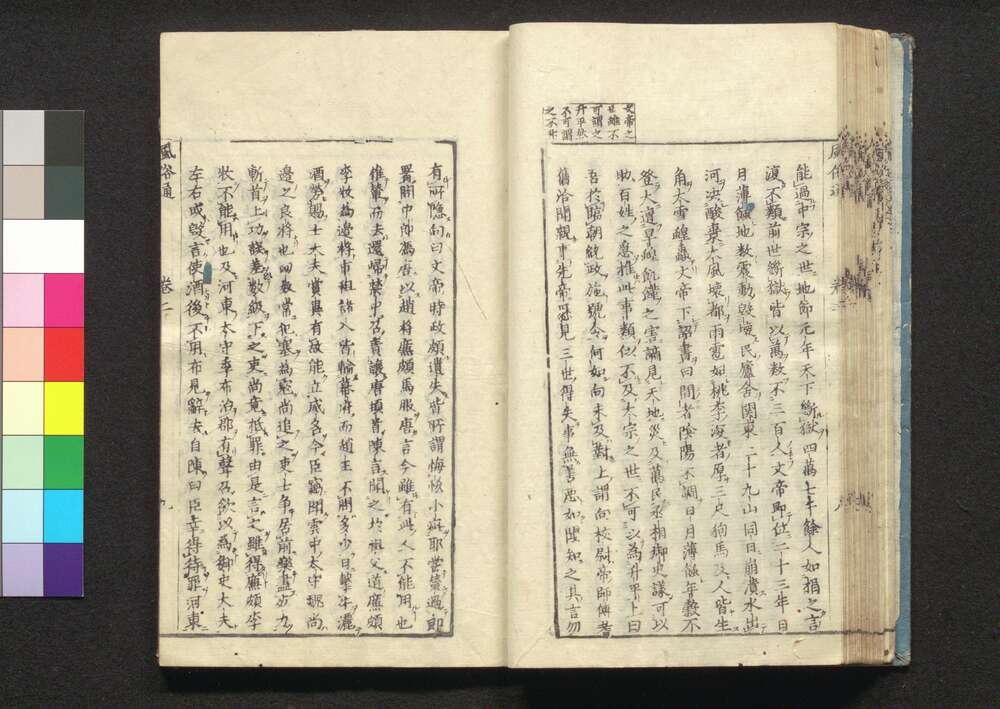 文帝之
世雖不
可謂之
升平然
不可謂
之不升
能過中宗之世地節元年天下斷獄四萬七千餘人如捐之言
復不類前世斷獄皆以萬數不三百人文帝即位二十三年日
月薄蝕地數震動毀壞民廬舍關東二十九山同日崩潰水出
河決酸棗大風壞都雨雹如桃李深者厚三尺狗馬及人皆生
角大雪蝗蟲文帝下詔書曰間者陰陽不調日月薄蝕年穀不
登大遭旱蝗飢饉之害謫見天地災及萬民丞相御史議可以
助百姓之急推此事類似不及太宗之世不可以為升平上曰
吾於臨朝統政施號令何如向未及對上謂向校尉帝師傅耆
舊洽聞親事先帝歷見三世得失事無善惡如聞知之其言勿
有所隱向曰文帝時政頗遺失皆所謂悔恡小疵耶嘗輦過郎
署問中郎馮唐以趙將廉頗馬服唐言今雖有此人不能用也
推輦而去還歸禁中召責讓唐頓首陳言聞之於祖父道廉頗
李牧為邊將市租諸入皆輸幕府而趙王不問多少日擊牛灑
酒勞賜士大夫賞異有故能立威名今臣竊聞雲中太守魏尚
邊之良將也匈奴常犯塞為寇尚追之吏士爭居前樂盡力
斬首上功誤差數級下之吏尚竟抵罪由是言之雖得廉頗李
牧不能用也及河東太守季布治郡有聲召欲以為御史大夫
左右或毀言使酒後不用布見辭去自陳曰臣幸得待罪河東
風俗通
卷二
九